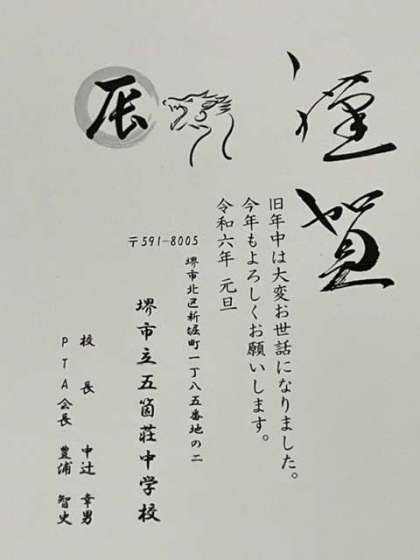 謹賀
辰
旧年中は大変お世話になりました。
今年もよろしくお願いします。
令和六年 元旦
〒591-8005
堺市北区新堀町一丁八五番地の二
堺市立五箇荘中学校
校長 中辻 幸男
PTA会長 豊浦 智史